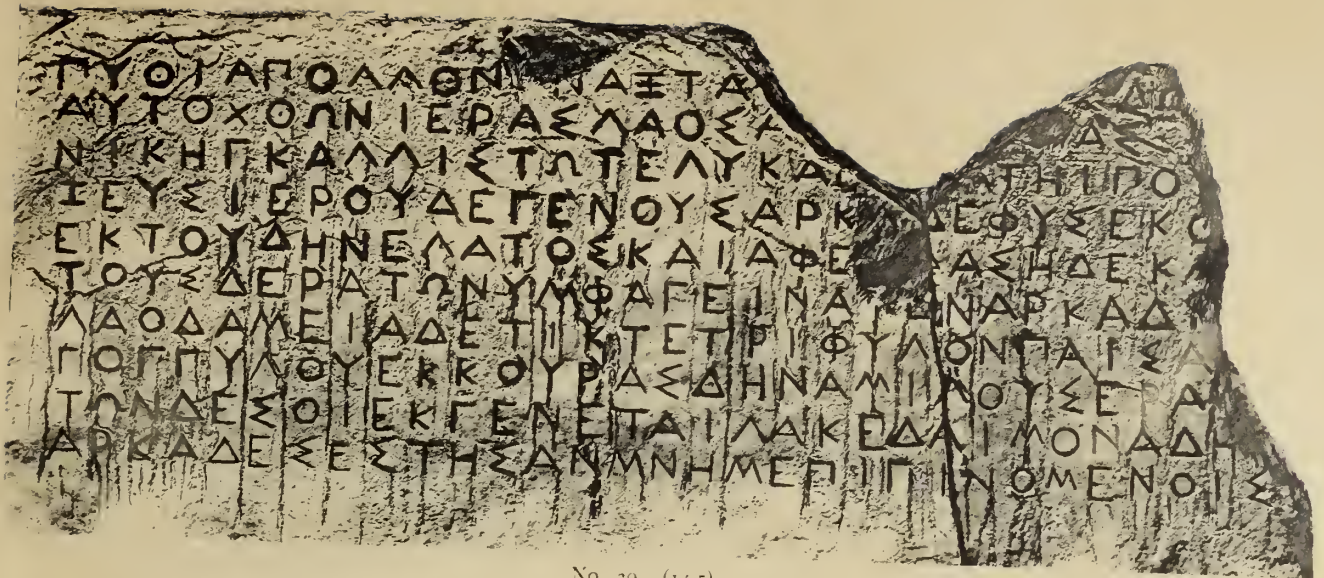 ΠΥΘΙΑΠΟΛΛΟΝ ΝΑΞΤΑ
ΑΥΤΟΧΘΩΝΙΕΡΑΣΛΑΟΣΑ Δ
ΝΙΚΗΓΚΑΛΛΙΣΤΩΤΕΛΥΚΑ ΤΗΙΠΟ
ΞΕΥΣΙΕΡΟΥΔΕΓΕΝΟΥΣΑΡΚ ΔΕΦΥΣΕΚΟ
ΕΚΤΟΥΔΗΝΕΛΑΤΟΣΚΑΙΑΦΕ ΑΣΗΔΕΚΑ
ΤΟΥΣΔΕΡΑΤΩΝΥΜΦΑΓΕΙΝΑΤΕΝΑΡΚΑΔΙ
ΛΑΟΔΑΜΕΙΑΔΕΤΙΚΤΕΤΡΙΦΥΛΟΝΠΑΙΣΑ
ΓΟΓΓΥΛΟΥΕΚΚΟΥΡΑΣΔΗΝΑΜΙΛΟΥΣΕΡΑ
ΤΩΝΔΕΣΟΙΕΚΓΕΝΕΤΑΙΛΑΚΕΔΑΙΜΟΝΑΔΗ
ΑΡΚΑΔΕΣΕΣΤΗΣΑΝΜΝΗΜΕΠΙΓΙΝΟΜΕΝΟΙΣ